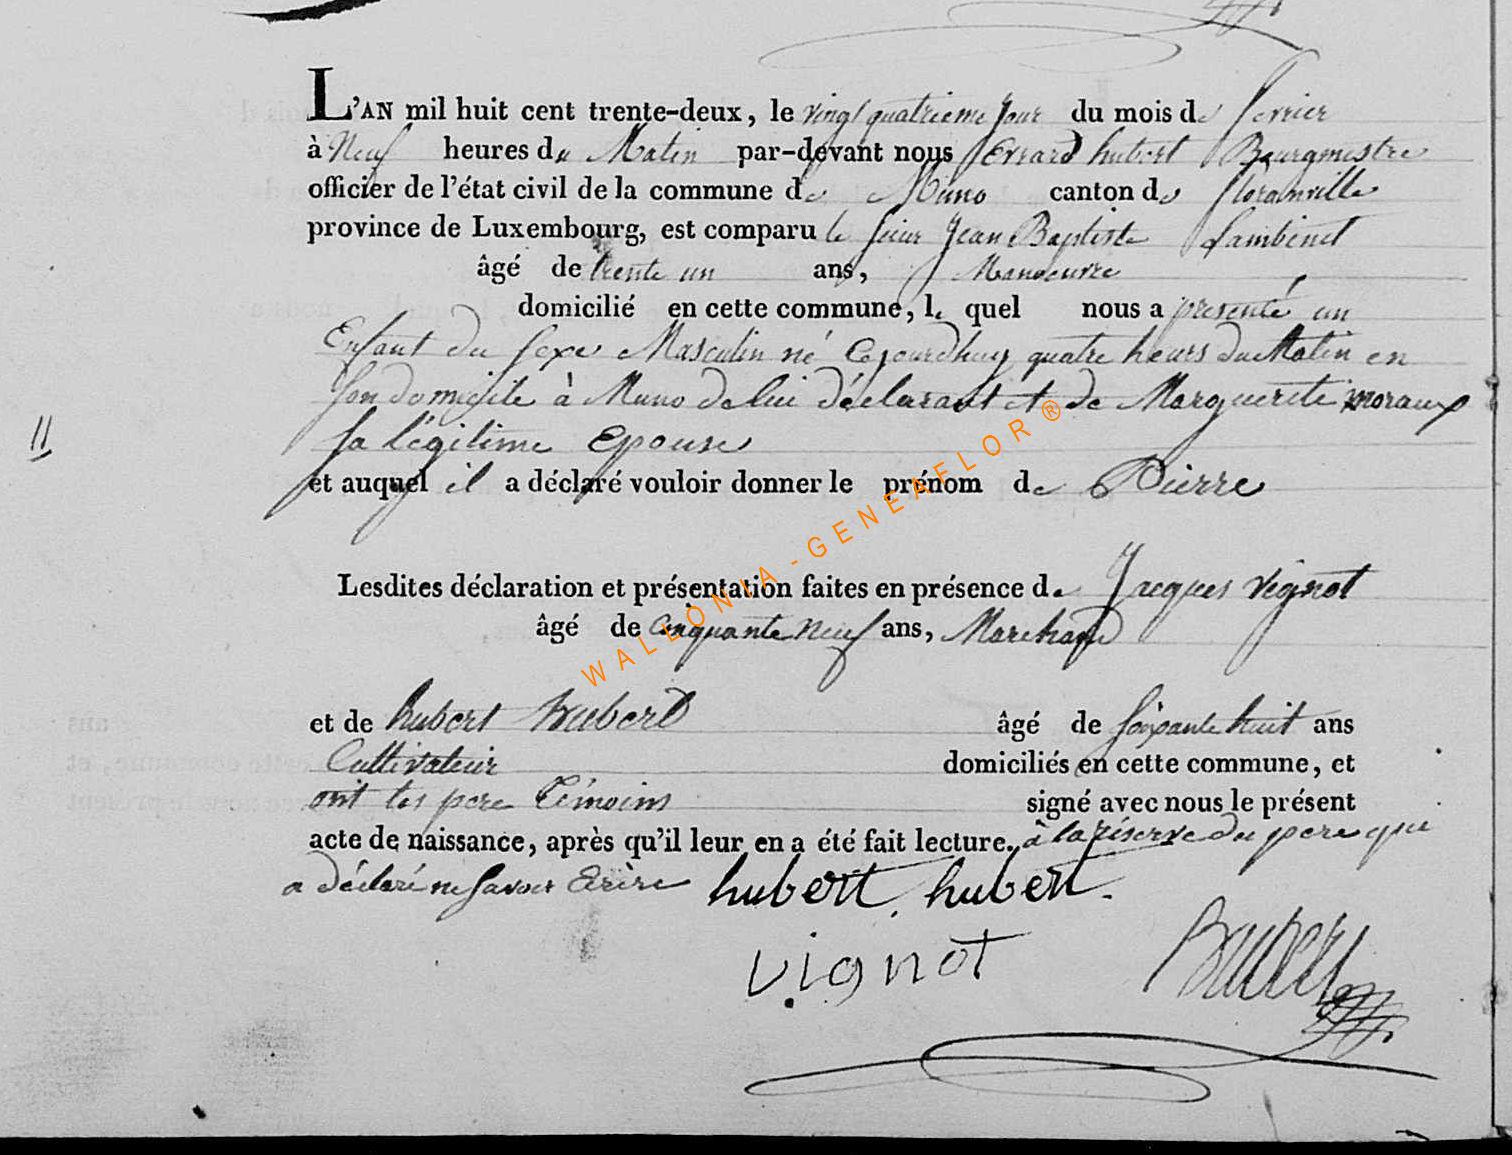 L'AN mil huit cent trente-deux, le vingt quatrieme jour du mois de fevrier
à Neuf heures du Matin par-devant nous Evrard hubert Bourgmestre
officier de l'état civil de la commune de Muno canton de florainville
province de Luxembourg, est comparu le sieur Jean Baptiste Lambinet
âgé de trente un ans, Manoeuvre
domicilié en cette commune, le quel nous a presenté un
Enfant du sexe Masculin né Cejourdhuy quatre heurs du Matin en
son domicile à Muno de lui déclarant et de Marguerite moraux
11
sa légitime Epouse
et auquel il a déclaré vouloir donner le prénom de Pierre
Lesdites déclaration et présentation faites en présence de Jacques vignot
âgé de Cinquante neuf ans, Marchand
et de hubert hubert âgé de soixante huit ans
Cultivateur domiciliés en cette commune, et
ont les pere témoins signé avec nous le présent
acte de naissance, après qu'il leur en a été fait lecture. à la réserve du pere que
a déclaré ne savoir Ecrire hubert. hubert.
vignot
WALLONIA-GENEAFLOR®